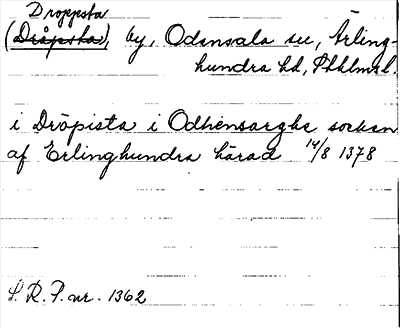 Droppsta
(Dråpsta), by, Odensala sn, Ärling-
hundra hd, Sthlms l.
i Dröpista i Odhensargha socken
af Erlinghundra härad 14/8 1378
S. R. P. nr. 1362